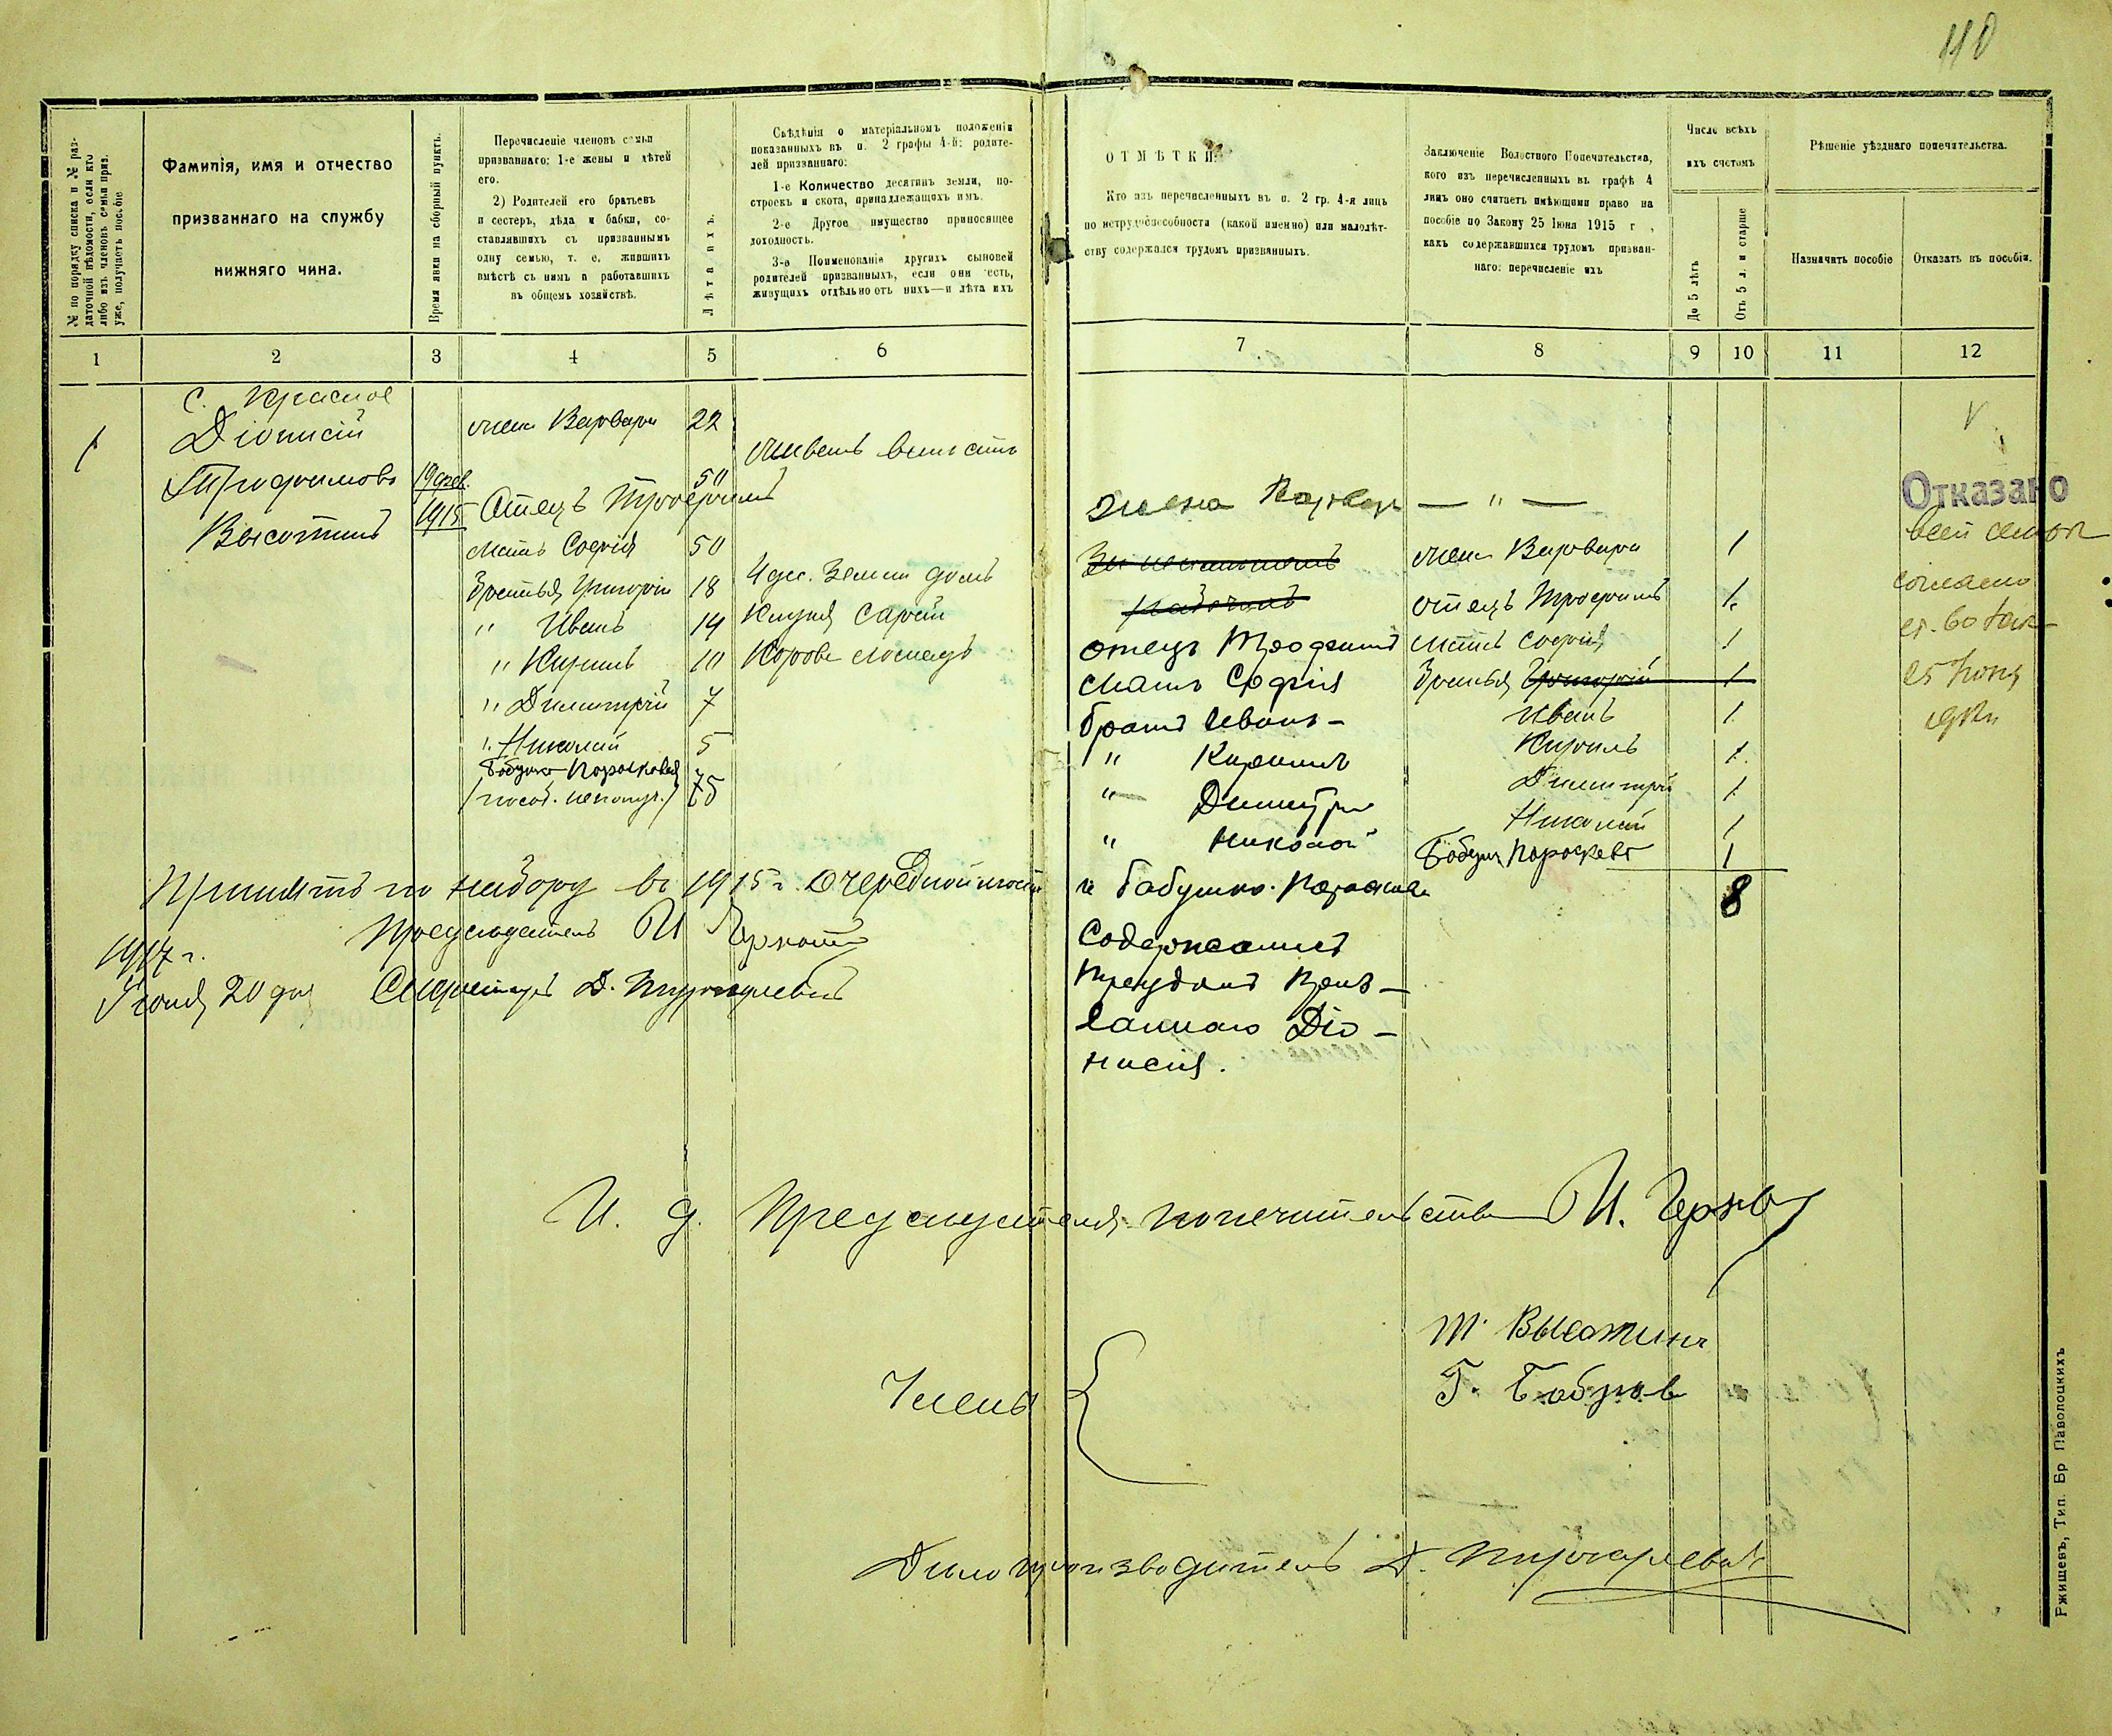 110
№ по порядку списка и № раз-
даточной вѣдомости, если кто
либо изъ членовъ семьи приз.
уже, получаетъ пособіе
Фамилія, имя и отчество
призваннаго на службу
нижняго чина.
Время явки на сборный пунктъ.
Перечисленіе членовъ семьи
призваннаго: 1-е жены и дѣтей
его.
2) Родителей его братьевъ
и сестеръ, дѣда и бабки, со-
ставлявшихъ съ призваннымъ
одну семью, т. е. жившихъ
вмѣстѣ съ нимъ и работавшихъ
въ общемъ хозяйствѣ.
Лѣта ихъ.
Свѣдѣнія о матеріальномъ положеніи
показанныхъ въ п. 2 графы 4-й: родите-
лей призваннаго:
1-е Количество десятинъ земли, по-
строекъ и скота, принадлежащихъ имъ.
2-е Другое имущество приносящее
доходность.
3-е Поименованіе другихъ сыновей
родителей призванныхъ, если они есть,
живущихъ отдѣльно отъ нихъ—и лѣта ихъ
ОТМѢТКИ:
Кто изъ перечисленныхъ въ п. 2 гр. 4-я лицъ
по нетрудоспособности (какой именно) или малолѣт-
ству содержался трудомъ призванныхъ.
Заключеніе Волостного Попечительства,
кого изъ перечисленныхъ въ графѣ 4
лицъ оно считаетъ имѣющими право на
пособіе по Закону 25 Іюня 1915 г.,
какъ содержавшихся трудомъ призван-
наго: перечисленіе ихъ
Число всѣхъ
ихъ счетомъ
До 5 лѣтъ
Отъ 5 л. и старше
Рѣшеніе уѣзднаго попечительства.
Назначить пособіе
Отказать въ пособіи.
1 2 3 4 5 6 7 8 9 10 11 12
с. Красное
1
Діонисій
Трофимовъ
Высотинъ
19 фев.
1915
жена Варвара 22
Отецъ Трофимъ 50
мать Софія 50
Братья Григорій 18
" Иванъ 14
" Кирилъ 10
" Димитрій 7
" Николай 5
Бабушка Парасковія
75
живетъ вместѣ
4 дес. земли домъ
Клуня сарай
Корова лошадь
жена Варвар — " —
отецъ Трофимъ
мать Софія
братъ Иванъ -
" Кирилъ
" Димитрій
" Николай
и бабушка Параскева
содержались
трудомъ приз-
ваннаго Діо-
нисія.
жена Варвара 1
отецъ Трофимъ 1.
мать Софія 1
Братья Григорій 1
Иванъ 1
Кирилъ 1.
Димитрій 1
Николай 1
Бабушка Параскева 1
8
Отказано
всей семьи
согласно
25 Іюня
Принятъ по набору въ 1915 г.
1917 г.
Іюня 20 дня
Председатель И
Секретарь Д.
И. д. Председателя попечительства И.
Члены
Т. Высотинъ
Г. Бобров
Дѣлопроизводитель Д.
Ржищевъ, Тип. Бр Паволоцкихъ